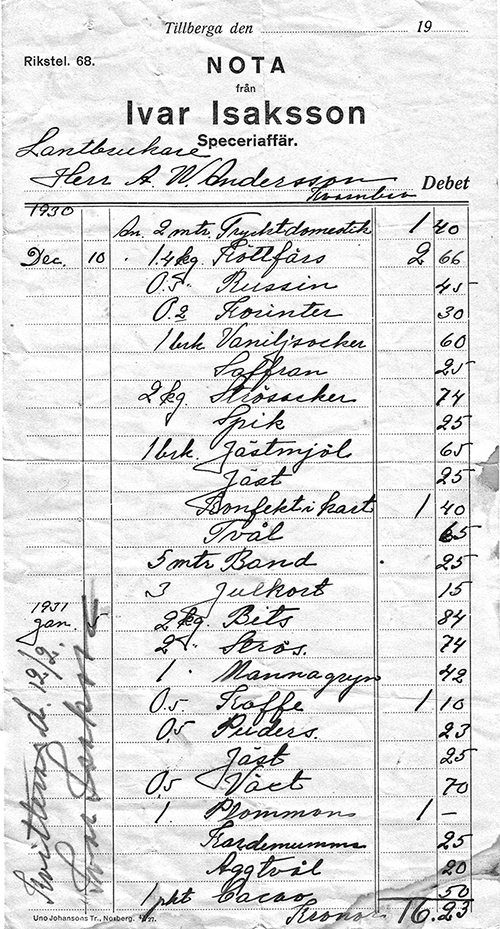 Tillberga den 19
Rikstel. 68.
NOTA
från
Ivar Isaksson
Speceriaffär.
Lantbrukare
Herr A. W. Andersson
Debet
1930
2 mtr Tryckt domestik 1 40
Dec. 10 1.4 kg. Köttfärs 2 66
0.5 " Russin 45
0.2 Korinter 30
1 brk Vaniljsocker 60
Saffran 25
2 kg. Strösocker 74
Spik 25
1 brk. Jästmjöl 65
Jäst 25
Konfekt i kart 1 40
Tvål 65
5 mtr Band 25
3 Julkort 15
1931
Jan. 5 2 kg. Bits 84
2 " Strös. 74
1 " Mannagryn 42
0.5 Kaffe 1 10
0,5 Puders. 23
Jäst 25
0,5 70
1. Plommon 1 –
Kardemumma 25
Äggtvål 20
1 pkt Cacao 50
Kronor 16.23
Kvitteras d. 12/2.
Ivar Isaksson
Uno Johansons Tr., Norberg.